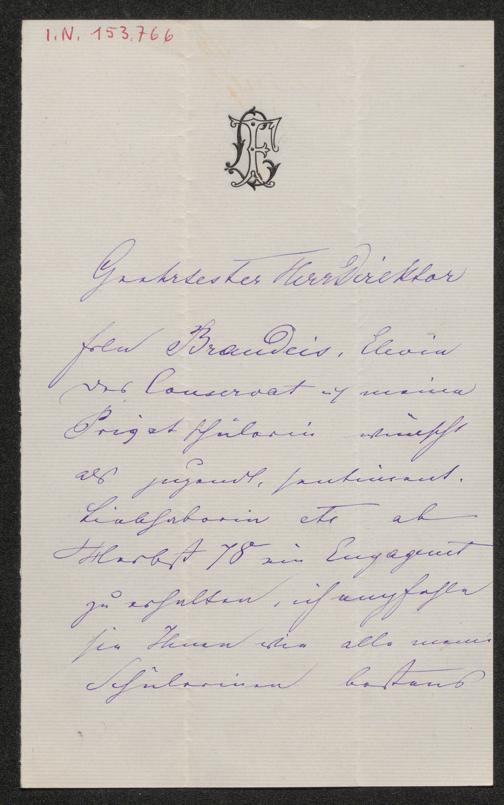 I.N. 153.766
Geehrtester Herr Direktor
Frln Brandeis, Elevin
des Conservat u. meine
Privat Schülerin wünscht
als jugendl. sentiment.
Liebhaberin etc ab
Herbst 78 ein Engagemt
zu erhalten, ich empfehle
sie Ihnen wie alle meine
Schülerinen bestens